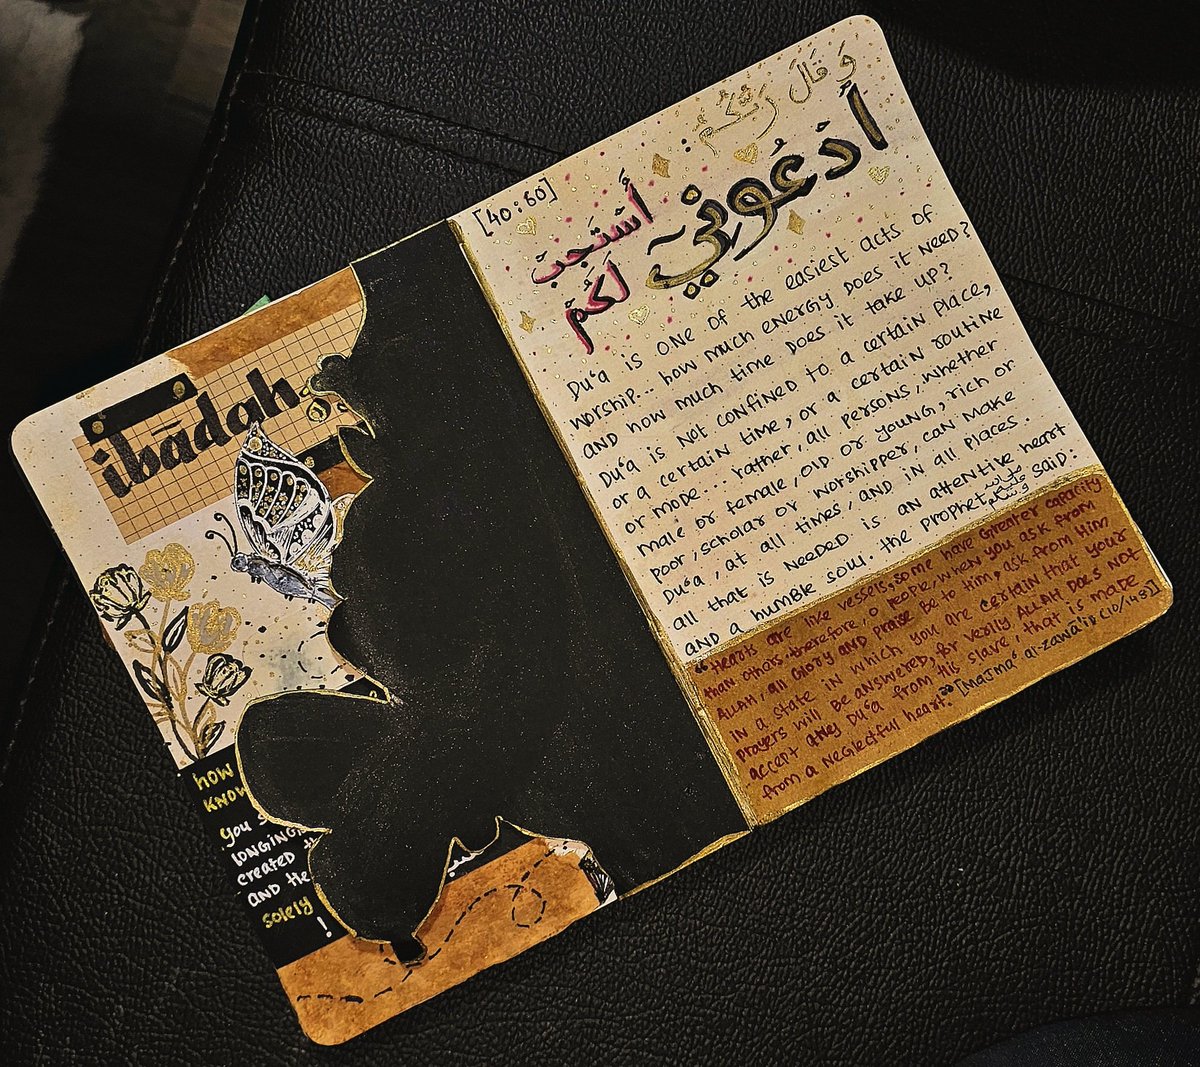 ibādah
how
KNOW
you s
LONGING
created t
AND He
solely
!
[40:60]
وَ قَالَ رَبُّكُمْ:
أَدْعُونِيٓ
أَسْتَجِبْ
لَكُمْ
Du'a is one of the easiest acts of
worship... how much energy does it need?
and how much time does it take up?
Du'a is not confined to a certain place,
or a certain time, or a certain routine
or mode... rather, all persons, whether
male or female, old or young, rich or
poor, scholar or worshipper, can make
Du'a, at all times, and in all places.
all that is needed is an attentive heart
and a humble soul. the prophet صلى الله عليه وسلم said:
"Hearts are like vessels, some have greater capacity
than others. therefore, o people, when you ask from
ALLAH, all Glory and praise be to Him, ask from Him
in a state in which you are certain that your
prayers will be answered, for verily ALLAH does not
accept any Du'a from His slave, that is made
from a neglectful heart." [Majma' al-zawā'id (10/148)]